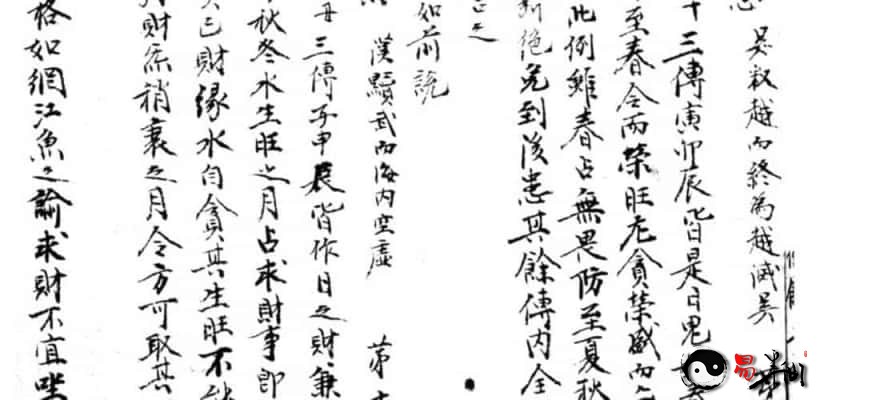 吳敢越而終為越滅吳
十三傳寅卯辰皆是日鬼
至春令而榮旺尤貪榮盛而
此例雖春占無畏防至夏秋
絕免到後患其餘傳內全
如前說
漢黷武而海內空虛 第十
三傳子申辰皆作日之財兼
秋冬水生旺之月占求財事即
己財緣水自貪其生旺不
財氣稍衰之月令方可取其
格如網江魚之諭求財不宜
易